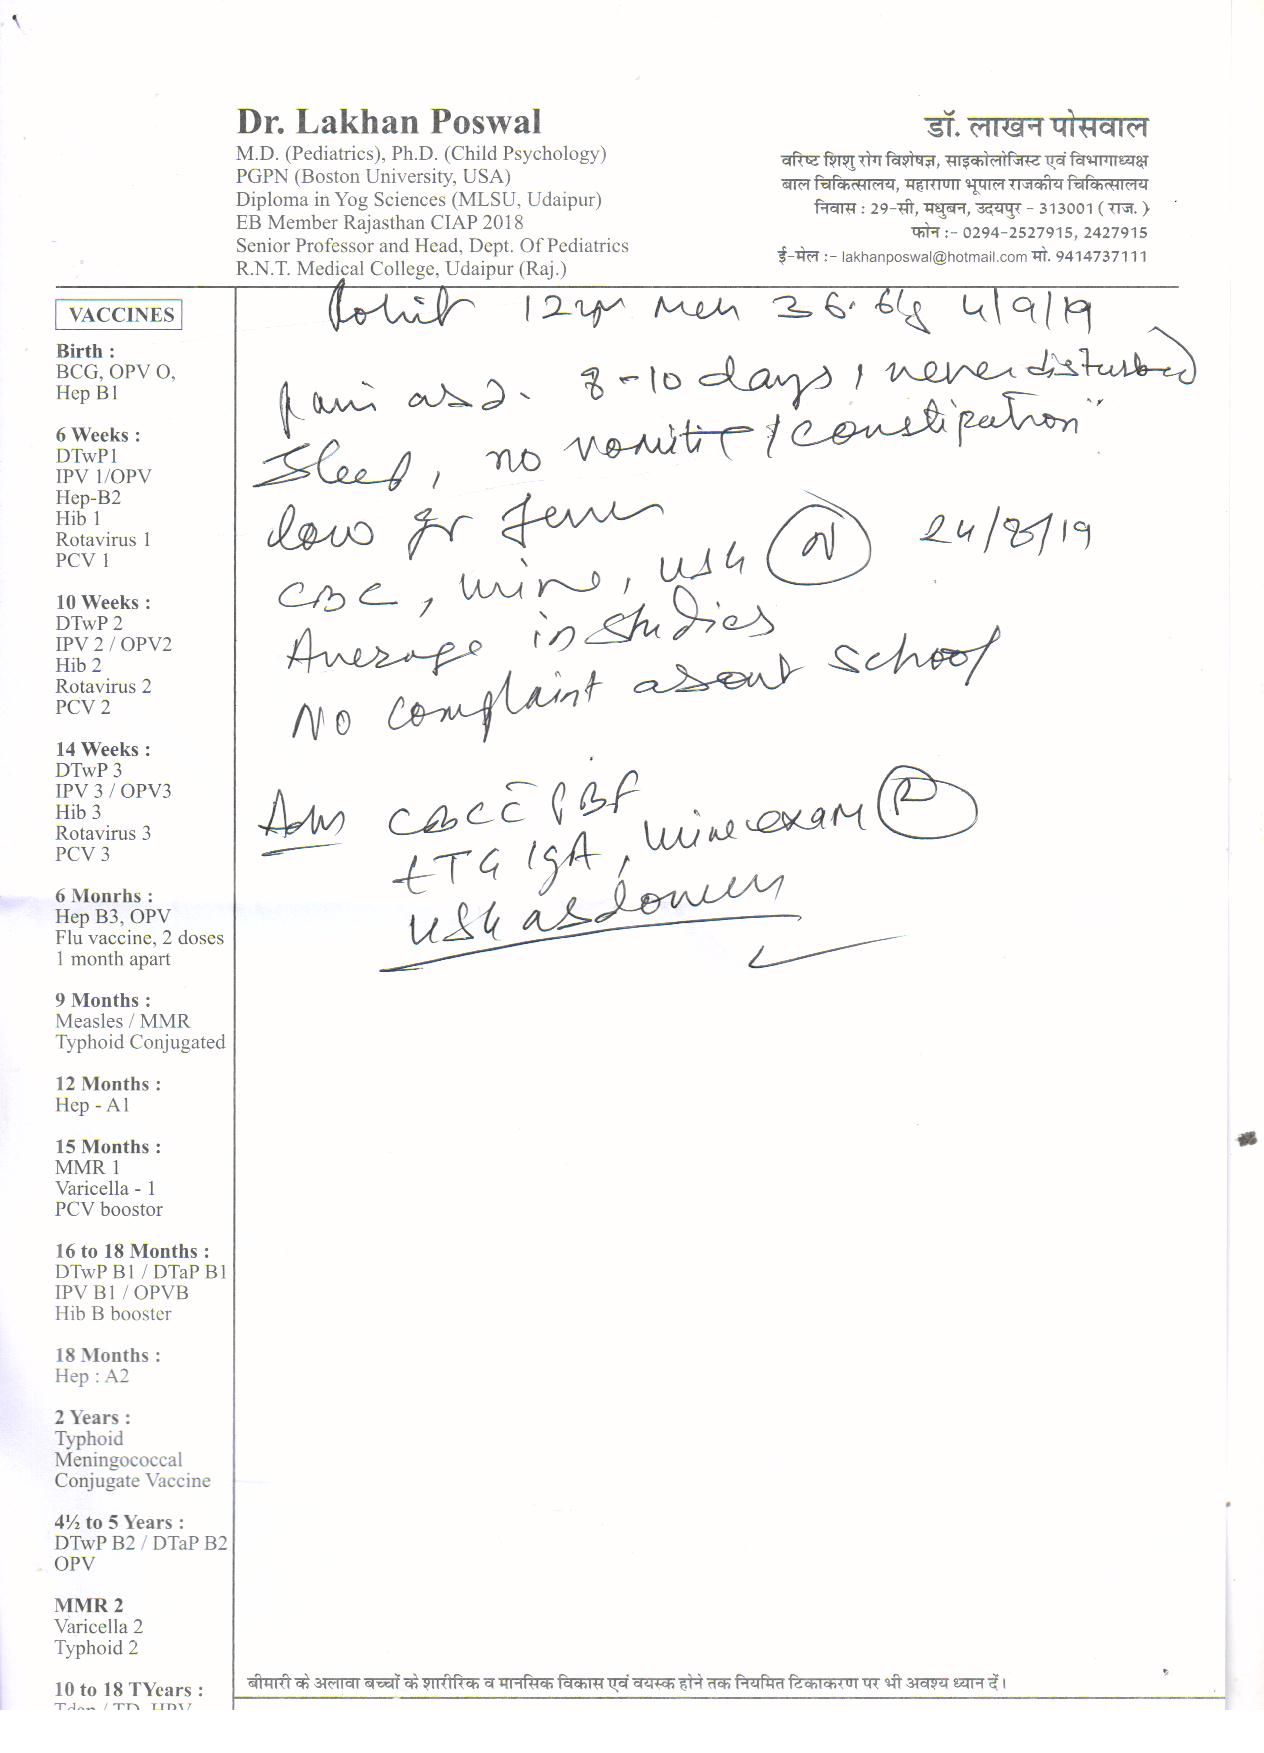 Dr. Lakhan Poswal
M.D. (Pediatrics), Ph.D. (Child Psychology)
PGPN (Boston University, USA)
Diploma in Yog Sciences (MLSU, Udaipur)
EB Member Rajasthan CIAP 2018
Senior Professor and Head, Dept. Of Pediatrics
R.N.T. Medical College, Udaipur (Raj.)
डॉ. लाखन पोसवाल
वरिष्ट शिशु रोग विशेषज्ञ, साइकोलोजिस्ट एवं विभागाध्यक्ष
बाल चिकित्सालय, महाराणा भूपाल राजकीय चिकित्सालय
निवास : 29-सी, मधुबन, उदयपुर - 313001 ( राज. )
फोन :- 0294-2527915, 2427915
ई-मेल :- lakhanposwal@hotmail.com मो. 9414737111
VACCINES
Birth :
BCG, OPV O,
Hep B1
6 Weeks :
DTwP1
IPV 1/OPV
Hep-B2
Hib 1
Rotavirus 1
PCV 1
10 Weeks :
DTwP 2
IPV 2 / OPV2
Hib 2
Rotavirus 2
PCV 2
14 Weeks :
DTwP 3
IPV 3 / OPV3
Hib 3
Rotavirus 3
PCV 3
6 Monrhs :
Hep B3, OPV
Flu vaccine, 2 doses
1 month apart
9 Months :
Measles / MMR
Typhoid Conjugated
12 Months :
Hep - A1
15 Months :
MMR 1
Varicella - 1
PCV boostor
16 to 18 Months :
DTwP B1 / DTaP B1
IPV B1 / OPVB
Hib B booster
18 Months :
Hep : A2
2 Years :
Typhoid
Meningococcal
Conjugate Vaccine
4½ to 5 Years :
DTwP B2 / DTaP B2
OPV
MMR 2
Varicella 2
Typhoid 2
10 to 18 TYears :
Tdap / TD, HPV
Rohit 12yr 36. kg 4/9/19
pain abd. 8-10 days, never disturbed
sleep, no vomit / constipation
low gr fever
CBC, urine, USG N 24/8/19
Average in studies
No complaint about school
Adv CBC c̄ PBF
tTG IgA, urine exam R
USG abdomen
बीमारी के अलावा बच्चों के शारीरिक व मानसिक विकास एवं वयस्क होने तक नियमित टिकाकरण पर भी अवश्य ध्यान दें।